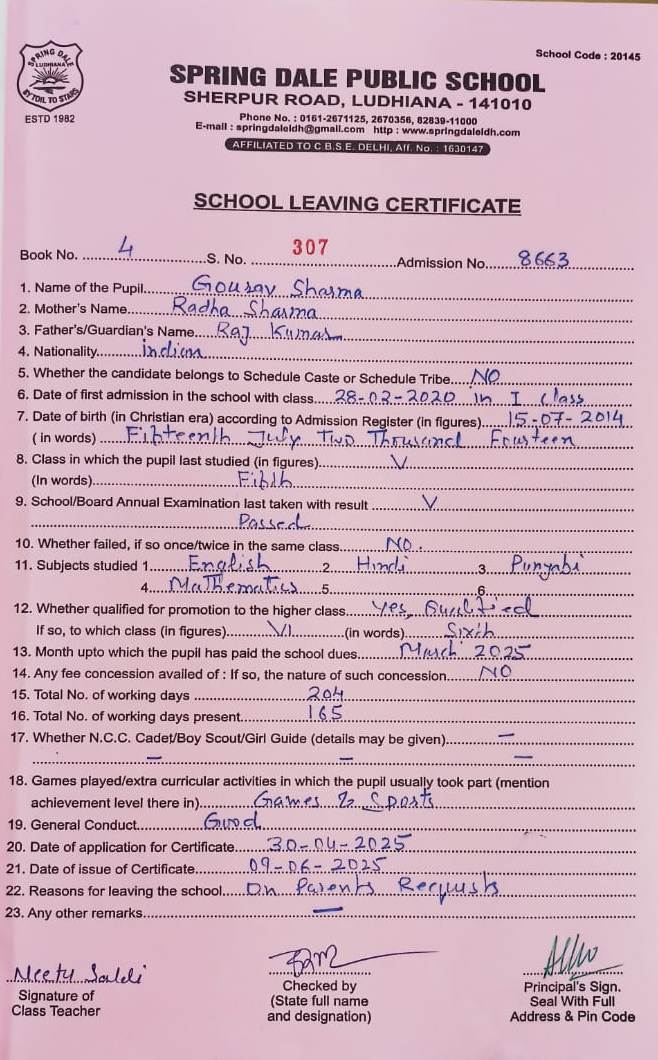 SPRING DALE
LUDHIANA
BY TOIL TO STARS
ESTD 1982
School Code : 20145
SPRING DALE PUBLIC SCHOOL
SHERPUR ROAD, LUDHIANA - 141010
Phone No. : 0161-2671125, 2670356, 82839-11000
E-mail : springdaleldh@gmail.com http : www.springdaleldh.com
AFFILIATED TO C.B.S.E. DELHI, Aff. No. : 1630147
SCHOOL LEAVING CERTIFICATE
Book No. 4 S. No. 307 Admission No. 8663
1. Name of the Pupil Gourav Sharma
2. Mother's Name Radha Sharma
3. Father's/Guardian's Name Raj Kumar
4. Nationality indian
5. Whether the candidate belongs to Schedule Caste or Schedule Tribe NO
6. Date of first admission in the school with class 28-02-2020 in I Class
7. Date of birth (in Christian era) according to Admission Register (in figures) 15-07-2014
( in words) Fifteenth July Two Thousand Fourteen
8. Class in which the pupil last studied (in figures) V
(In words) Fifth
9. School/Board Annual Examination last taken with result V
Passed
10. Whether failed, if so once/twice in the same class NO.
11. Subjects studied 1 English 2 Hindi 3. Punjabi
4 Mathematics 5 6
12. Whether qualified for promotion to the higher class Yes, Qualified
If so, to which class (in figures) VI (in words) Sixth
13. Month upto which the pupil has paid the school dues March 2025
14. Any fee concession availed of : If so, the nature of such concession NO
15. Total No. of working days 204
16. Total No. of working days present 165
17. Whether N.C.C. Cadet/Boy Scout/Girl Guide (details may be given) —
— — —
18. Games played/extra curricular activities in which the pupil usually took part (mention
achievement level there in) Games & Sports
19. General Conduct Good
20. Date of application for Certificate 30-04-2025
21. Date of issue of Certificate 09-06-2025
22. Reasons for leaving the school On Parents Requests
23. Any other remarks —
Neetu
Signature of
Class Teacher
Checked by
(State full name
and designation)
Principal's Sign.
Seal With Full
Address & Pin Code